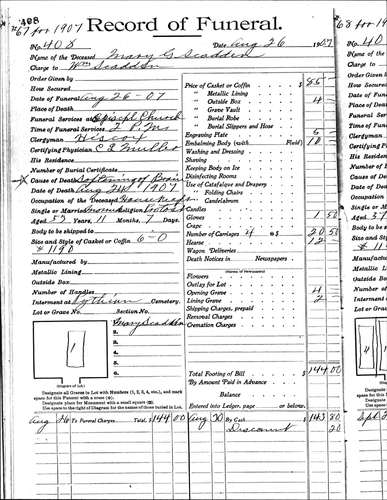 408
#67 for 1907
Record of Funeral.
No. 408 Date Aug 26 1907
Name of the Deceased Mary G Scadden
Charge to Wm Scadden
Order Given by
How Secured
Date of Funeral Aug 26-07
Place of Death
Funeral Services at Episcopl Church
Time of Funeral Services 2 P.M.
Clergyman
Certifying Physician C E Muller
His Residence
Number of Burial Certificate
Cause of Death Softening of Brain
Date of Death Aug 24 1907
Occupation of the Deceased Housekeeper
Single or Married Religion
Aged 32 Years, 11 Months, 7 Days.
Body to be shipped to
Size and Style of Casket or Coffin 6-0
#1190
Manufactured by
Metallic Lining
Outside Box
Number of Handles
Interment at Pythian Cemetery.
Lot or Grave No. Section No.
1. Mary Scadden
2.
3.
4.
5.
6.
1
(Diagram of Lot)
Designate all Graves in Lot with Numbers (1, 2, 3, 4, etc.), and mark
space for this Funeral with a cross (+).
Designate place for Monument with a small square (□).
Use space to the right of Diagram for the names of those buried in Lot.
Price of Casket or Coffin $ 85
" Metallic Lining
" Outside Box 4
" Grave Vault
" Burial Robe
" Burial Slippers and Hose
Engraving Plate 5
Embalming Body (with Fluid) 10
Washing and Dressing
Shaving
Keeping Body on Ice
Disinfecting Rooms
Use of Catafalque and Drapery
" Folding Chairs
" Candelabrum
Candles
Gloves 1 50
Crape
Number of Carriages 4 @ 5 20 50
Hearse 12
Wagon Deliveries
Death Notices in Newspapers
(Names of Newspapers)
Flowers
Outlay for Lot
Opening Grave 4
Lining Grave 2
Shipping Charges, prepaid
Removal Charges
Cremation Charges
Total Footing of Bill $ 144 00
By Amount Paid in Advance
Balance
Entered into Ledger, page or below.
Aug 26 To Funeral Charges Total, $ 144 00 Aug 30 By Cash 143 80
Discount 20
68 for 1907
No. 40
Name of the
Charge to
Order Given
How Secured
Date of Funeral
Place of Death
Funeral Services
Time of Funeral
Clergyman
Certifying Ph
His Residence
Number of Bu
Cause of Death
Date of Death
Occupation of
Single or Marr
Aged 37
Body to be sh
Size and Style
Manufactured
Metallic Lining
Outside Box
Number of Ha
Interment at
Lot or Grave
4
Designate all
space for this
Designate pla
Use space to
Sept